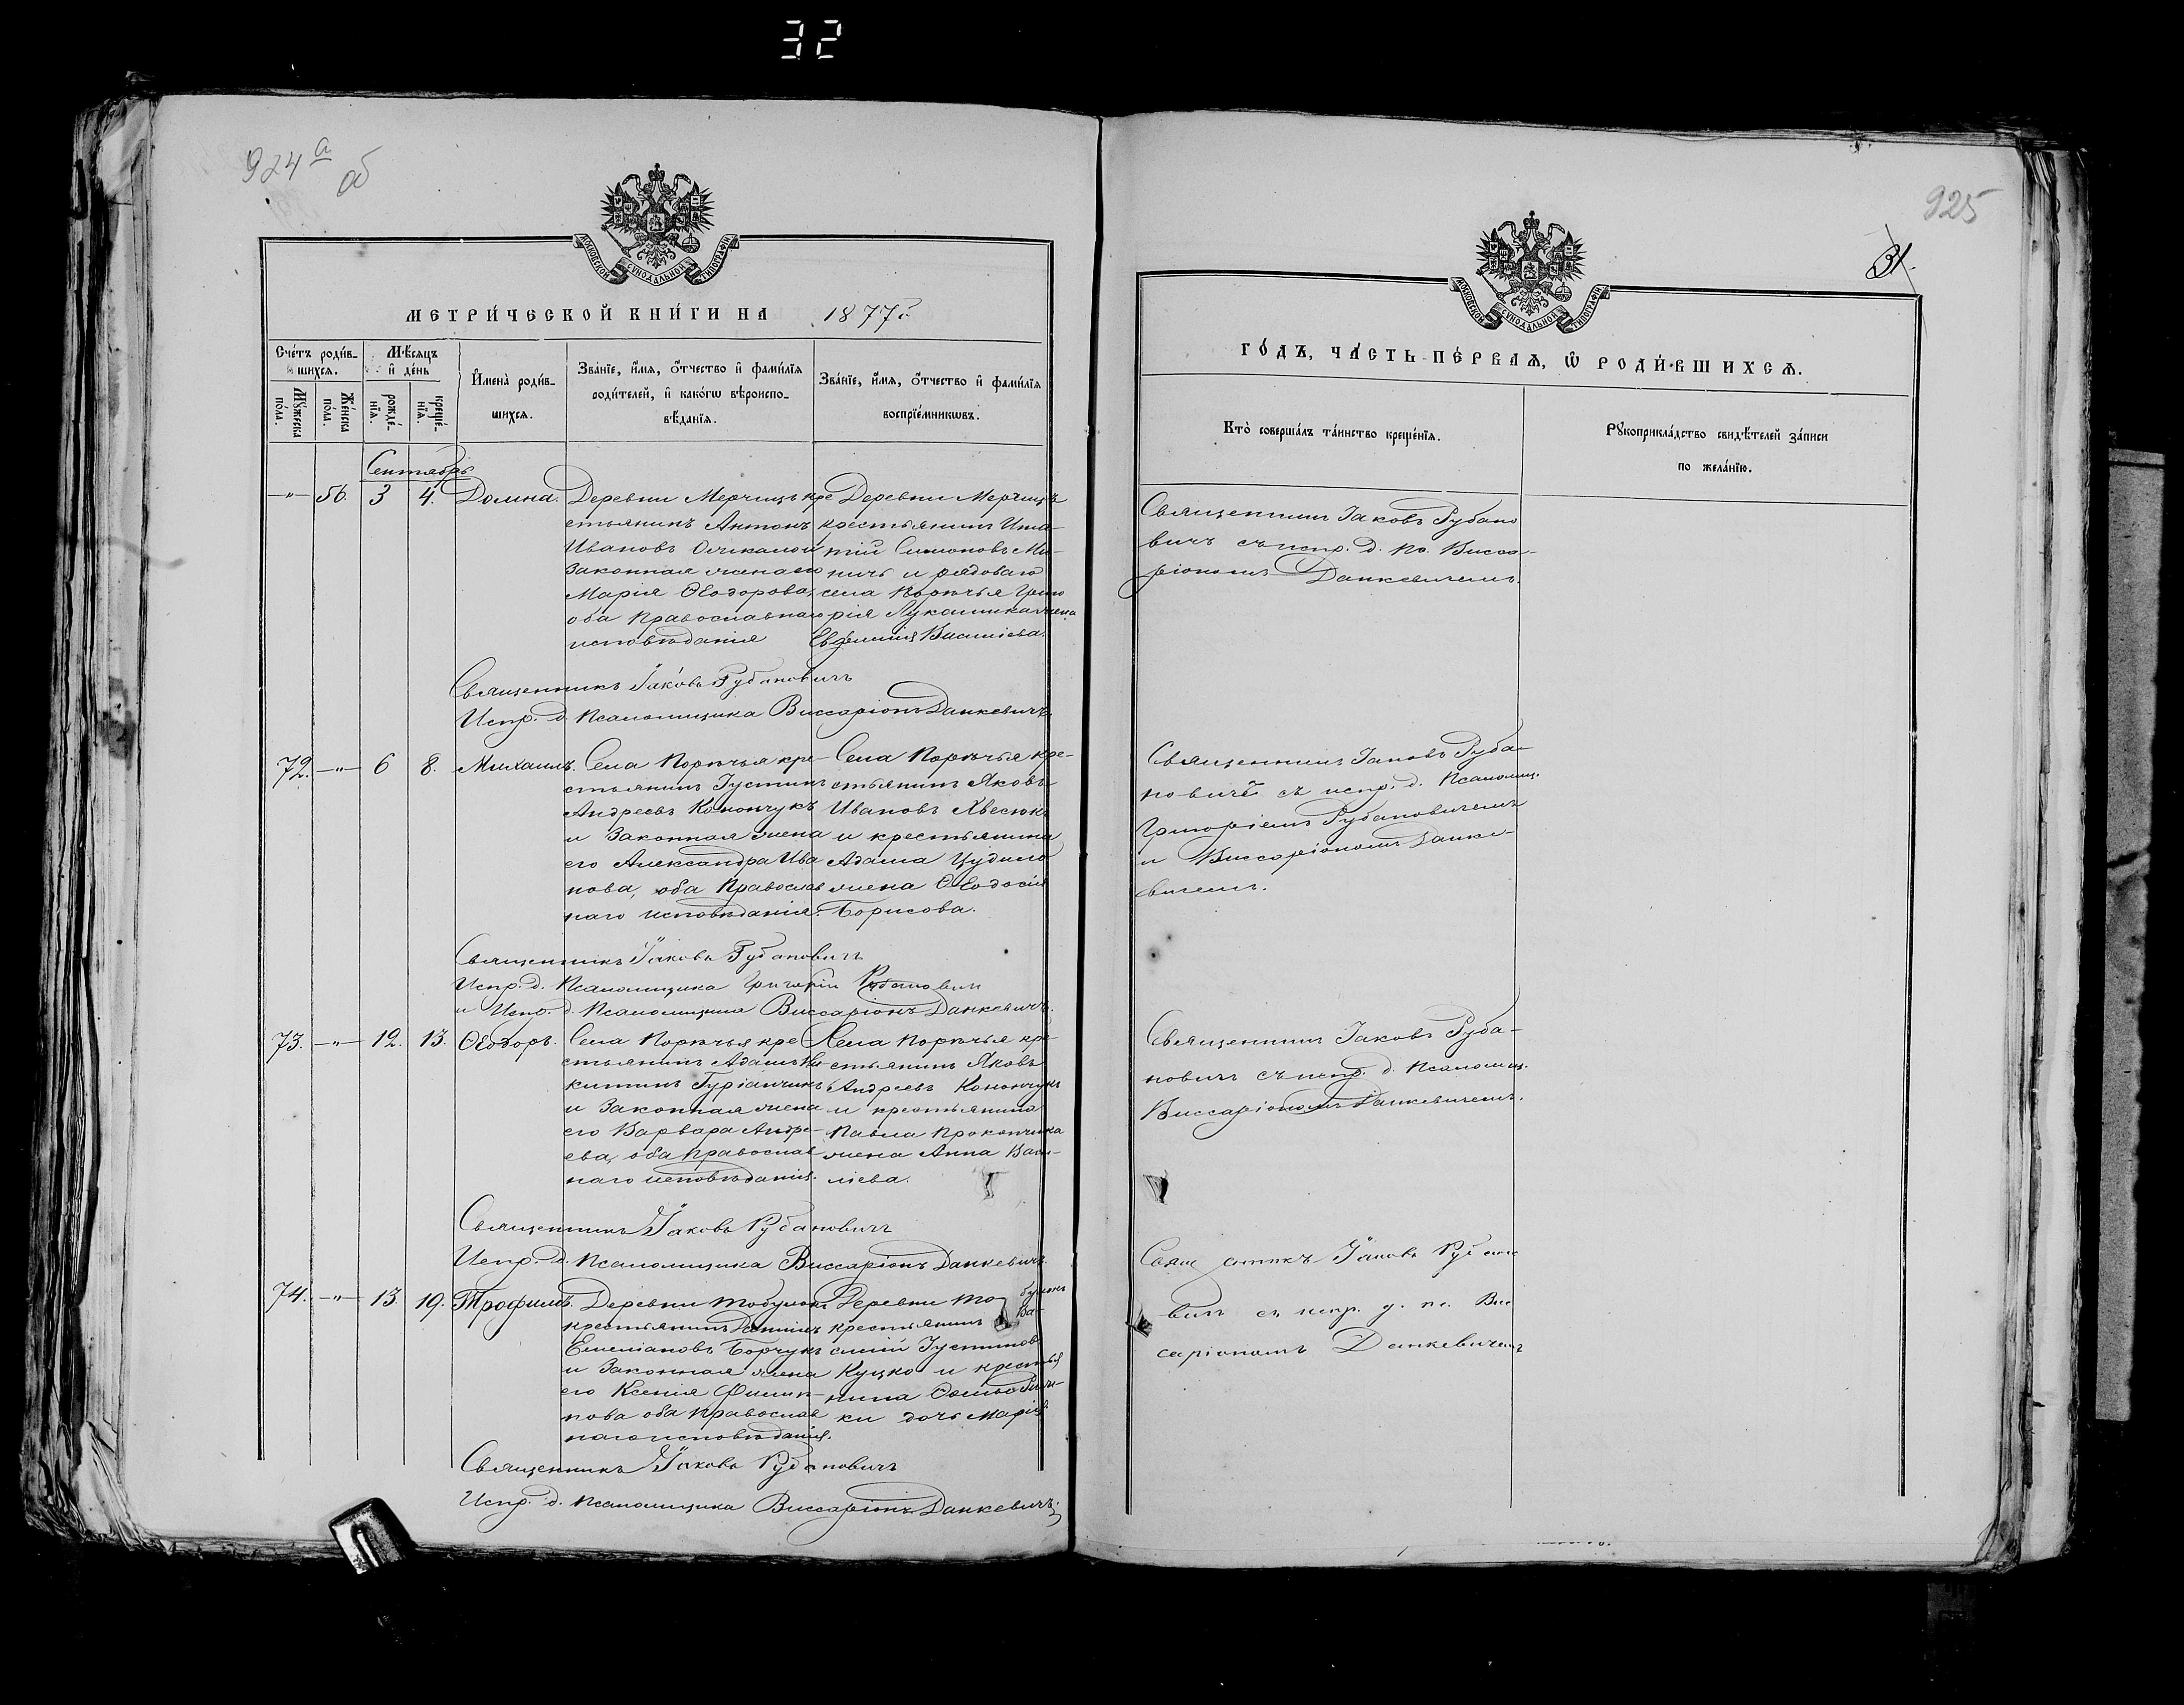 32
924 а
об
МОСКОВСКОЙ СѴНОДАЛЬНОЙ ТИПОГРАФІИ
МЕТРИ́ЧЕСКОЙ КНИ́ГИ НА 1877 г.
Сче́тъ роди́в-
шихсѧ.
Мꙋ́жеска
по́ла.
Же́нска
по́ла.
Мѣ́сѧцъ
и҆ де́нь
рожде́-
нїѧ.
креще́-
нїѧ.
И҆мена̀ роди́в-
шихсѧ.
Зва́нїе, и҆́мѧ, ѻ҆́тчество и҆ фами́лїѧ
роди́телей, и҆ како́гѡ вѣроиспо-
вѣ́данїѧ.
Зва́нїе, и҆́мѧ, ѻ҆́тчество и҆ фами́лїѧ
воспрїе́мникѡвъ.
Сентябрь
—"— 56. 3 4. Домна. Деревни Мерчицъ кре
стьянинъ Антонъ
Ивановъ
Законная жена его
Марія Ѳеодорова,
оба Православнаго
исповѣданія
Деревни Мерчицъ
крестьянинъ Игна-
тій Симоновъ Ми-
ничъ и рядоваго
села Порѣчья Григо
рія Лукашика жена
Евфимія Василіева.
Священникъ Іаковъ Рубановичъ
Испр. д. Псаломщика Виссаріонъ Данкевичъ.
72. —"— 6 8. Михаилъ. Села Порѣчья кре-
стьянинъ Іустинъ
Андреевъ Конончукъ
и Законная жена
его Александра Ива
нова, оба Православ
наго исповѣданія.
Села Порѣчья кре-
стьянинъ Яковъ
Ивановъ Хвесюкъ
и крестьянина
Адама
жена Ѳеодосія
Борисова.
Священникъ Іаковъ Рубановичъ
Испр. д. Псаломщика Григорій Рубановичъ
и Испр. д. Псаломщика Виссаріонъ Данкевичъ.
73. —"— 12. 13. Ѳеодоръ. Села Порѣчья кре
стьянинъ Адамъ Ни
китинъ Гуріанчикъ
и Законная жена
его Варвара Андре-
ева, оба Православ
наго исповѣданія.
Села Порѣчья кре-
стьянинъ Яковъ
Андреевъ Конончукъ
и крестьянина
Павла Прокопчика
жена Анна Васи-
ліева.
Священникъ Іаковъ Рубановичъ
Испр. д. Псаломщика Виссаріонъ Данкевичъ.
74. —"— 13. 19. Трофимъ. Деревни Тобулокъ
крестьянинъ
Емеліановъ Борчукъ
и Законная жена
его Ксенія Филип-
пова оба православ
наго исповѣданія.
Деревни Тобулокъ
крестьянинъ Ва-
силій Іустиновъ
Куцко и крестья
нина
ки дочь Марія
Священникъ Іаковъ Рубановичъ
Испр. д. Псаломщика Виссаріонъ Данкевичъ.
925
31.
МОСКОВСКОЙ СѴНОДАЛЬНОЙ ТИПОГРАФІИ
ГО́ДЪ, ЧА́СТЬ ПЕ́РВАѦ, Ѡ҆ РОДИ́ВШИХСѦ.
Кто̀ соверша́лъ та́инство креще́нїѧ.
Рꙋкоприкла́дство свидѣ́телей за́писи
по жела́нїю.
Священникъ Іаковъ Рубано
вичъ съ испр. д. пс. Висса-
ріономъ Данкевичемъ.
Священникъ Іаковъ Руба-
новичъ съ испр. д. Псаломщ.
Григоріемъ Рубановичемъ
и Виссаріономъ Данке-
вичемъ.
Священникъ Іаковъ Руба-
новичъ съ испр. д. Псаломщ.
Виссаріономъ Данкевичемъ.
Священникъ Іаковъ Рубано
вичъ съ испр. д. пс. Вис
саріономъ Данкевичемъ